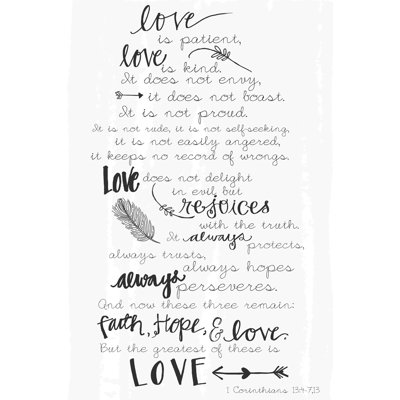 love
is patient,
love
is kind.
It does not envy,
it does not boast.
It is not proud.
It is not rude, it is not self-seeking,
it is not easily angered,
it keeps no record of wrongs.
Love does not delight
in evil but
rejoices
with the truth.
It always
protects,
always trusts,
always hopes
always
perseveres.
And now these three remain:
faith, Hope, & love.
But the greatest of these is
LOVE
1 Corinthians 13:4-7,13